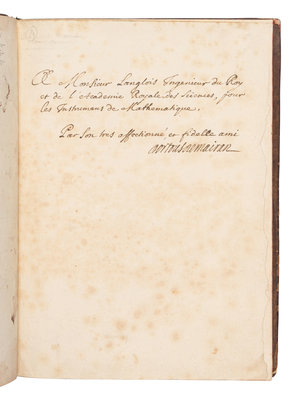 A Monsieur Langlois Ingenieur du Roy
et de l'Academie Royale des Sciences, pour
les Instrumens de Mathematique.
Par son tres affectionné et fidelle ami
dortous de mairan